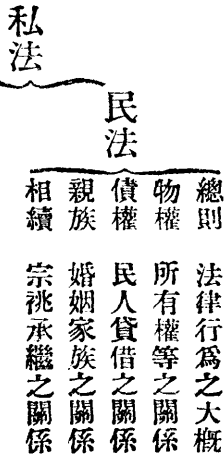 私法
民法
總則　法律行爲之大概
物權　所有權等之關係
債權　民人貸借之關係
親族　婚姻家族之關係
相續　宗祧承繼之關係